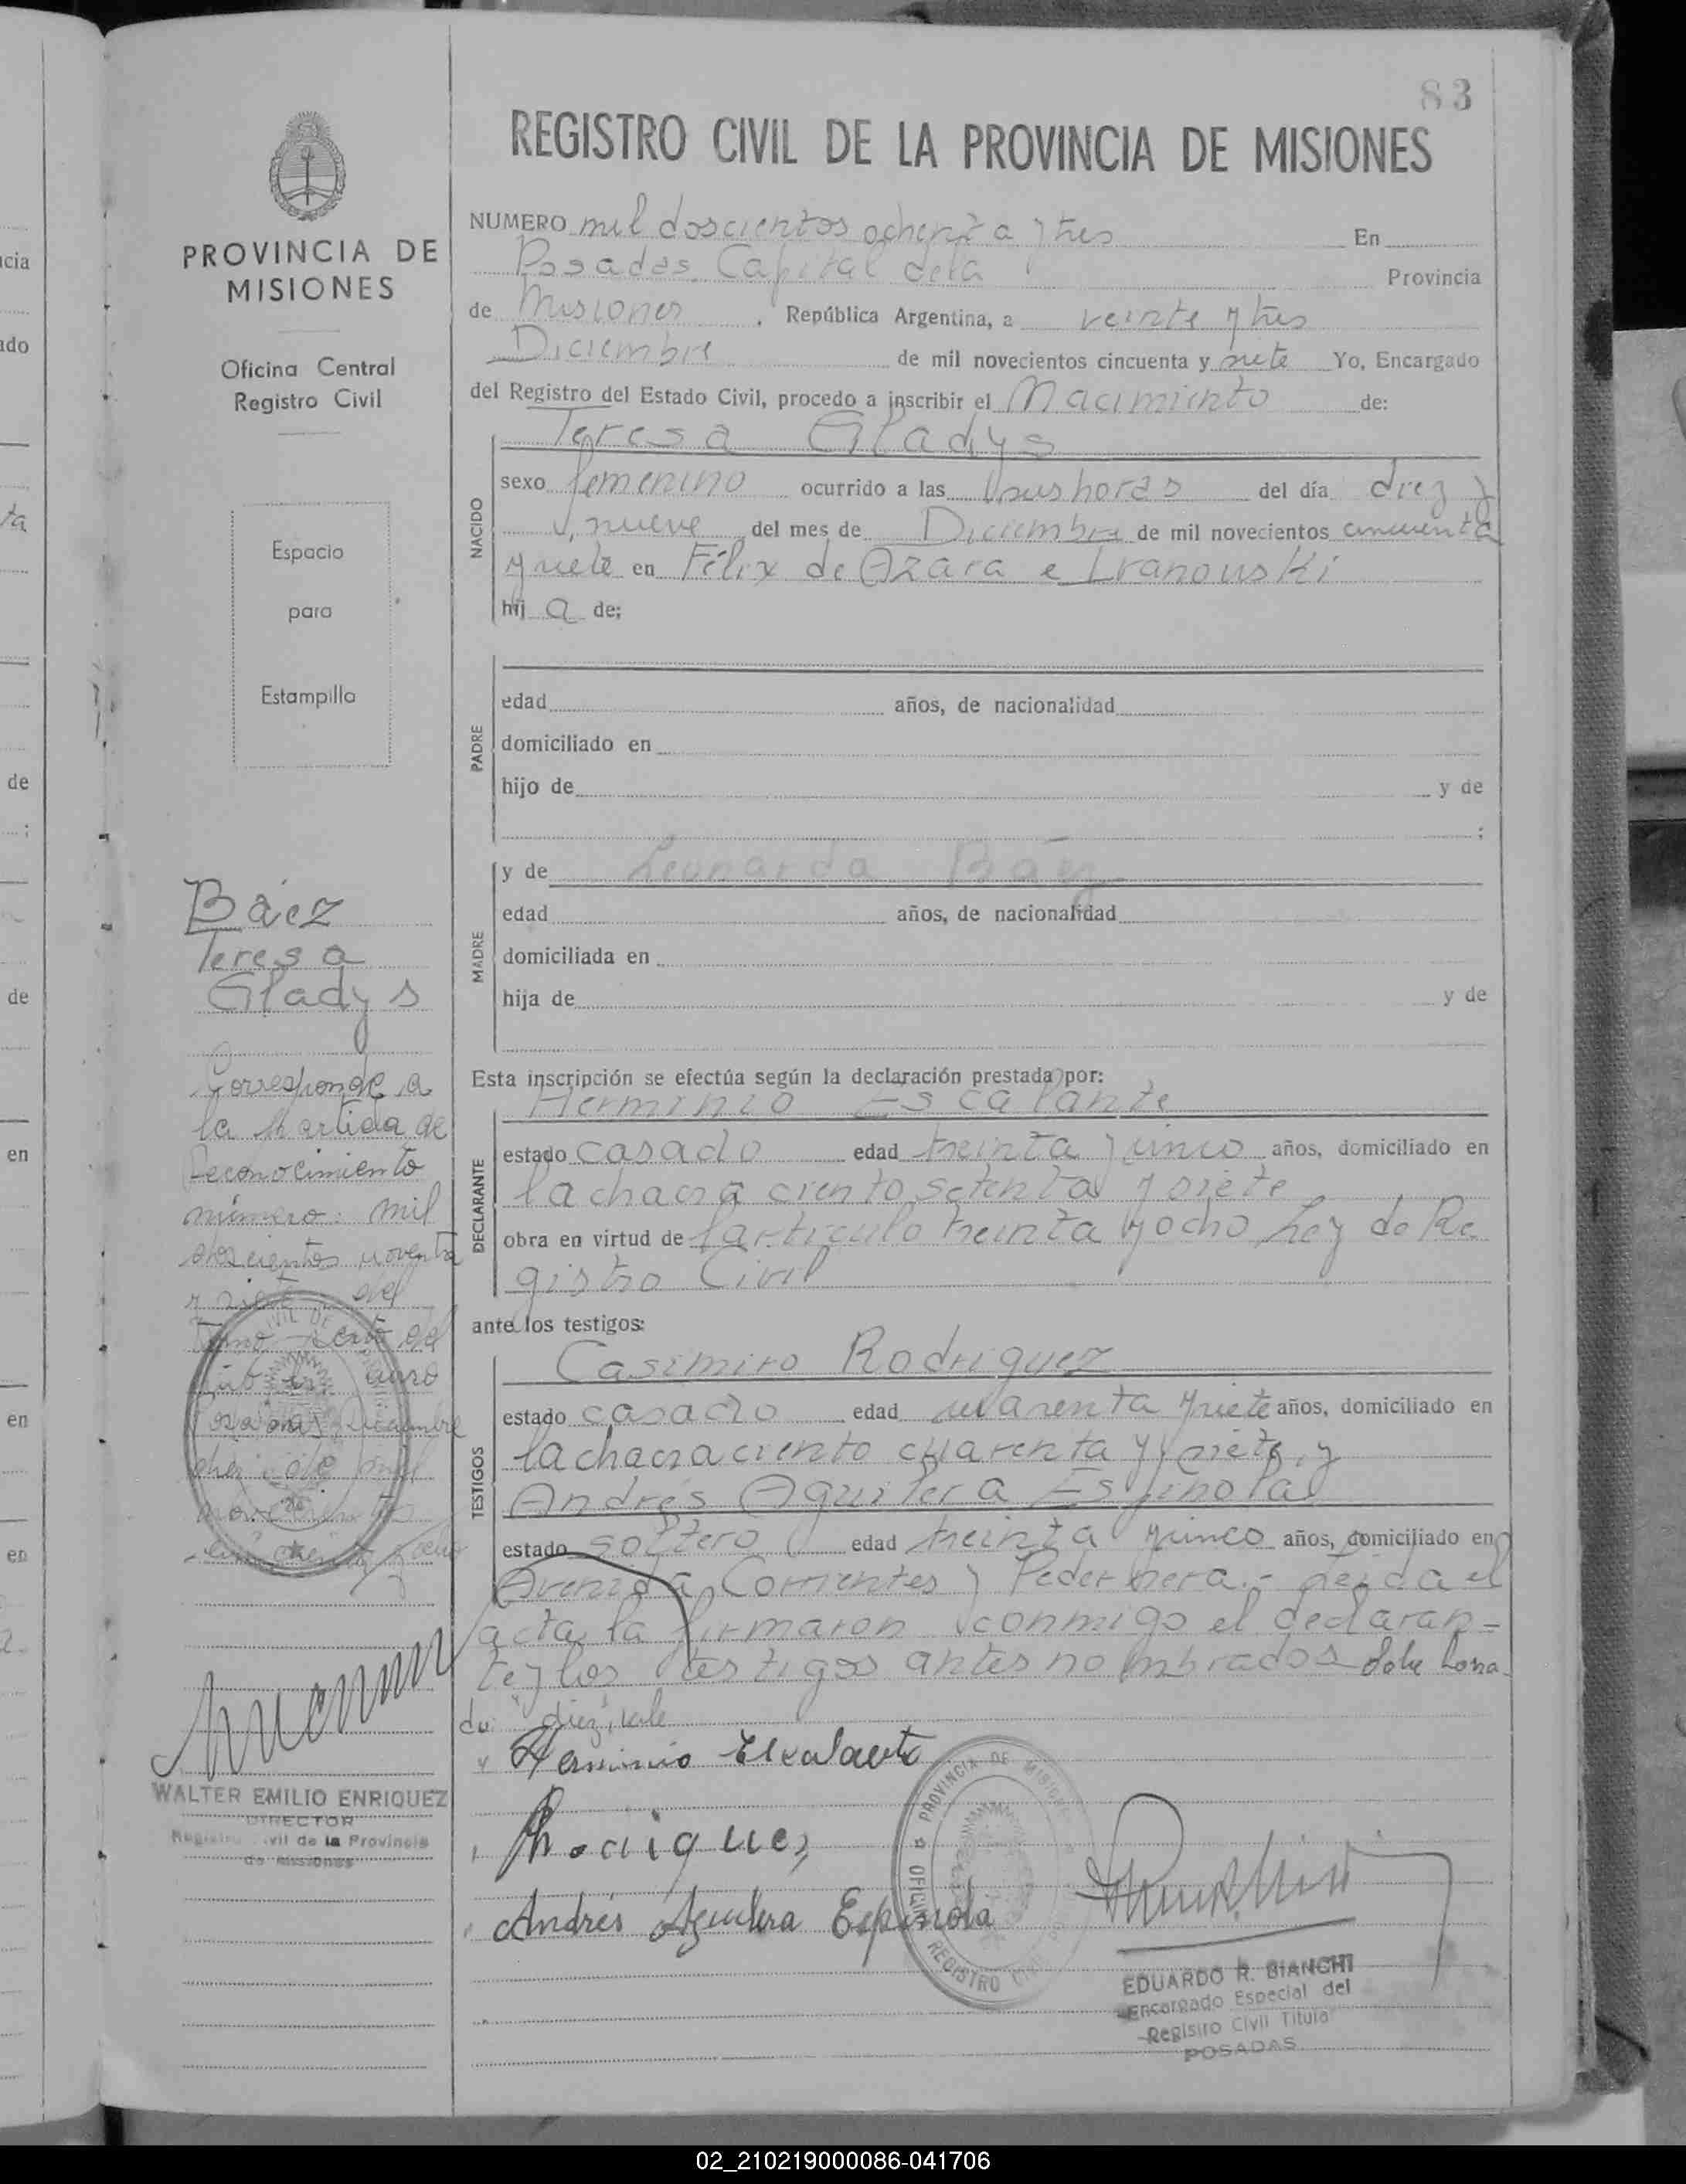 83
REGISTRO CIVIL DE LA PROVINCIA DE MISIONES
PROVINCIA DE
MISIONES
Oficina Central
Registro Civil
Espacio
para
Estampilla
Báez
Teresa
Gladys
Corresponde a
la Partida de
Reconocimiento
número mil
doscientos noventa
y siete del
Tomo sexto del
año
Posadas, Diciembre
de mil
novecientos
cincuenta y ocho
WALTER EMILIO ENRIQUEZ
DIRECTOR
Registro Civil de la Provincia
de Misiones
NUMERO mil doscientos ochenta y tres En
Posadas Capital dela Provincia
de Misiones, República Argentina, a veinte y tres
Diciembre de mil novecientos cincuenta y siete Yo, Encargado
del Registro del Estado Civil, procedo a inscribir el Nacimiento de:
Teresa Gladys
NACIDO
sexo femenino ocurrido a las horas del día diez y
nueve del mes de Diciembre de mil novecientos cincuenta
y siete en Félix de Azara e Ivanowski
hij a de;
PADRE
edad años, de nacionalidad
domiciliado en
hijo de y de
;
y de Leonarda Báez
MADRE
edad años, de nacionalidad
domiciliada en
hija de y de
Esta inscripción se efectúa según la declaración prestada por:
Herminio Escalante
DECLARANTE
estado casado edad treinta y cinco años, domiciliado en
la chacra ciento setenta y siete
obra en virtud de l'articulo treinta y ocho Ley de Re
gistro Civil
ante los testigos:
Casimiro Rodriguez
TESTIGOS
estado casado edad cuarenta y siete años, domiciliado en
la chacra ciento cuarenta y siete, y
Andrés Aguilera Espinola
estado soltero edad treinta y cinco años, domiciliado en
Avenida Corrientes y Pedernera.- Leida el
acta la firmaron conmigo el declaran-
te y los testigos antes nombrados Sobe borra
do: "diez", vale
Herminio Escalante
Rodriguez
Andrés Aguilera Espinola
PROVINCIA DE MISIONES
OFICINA REGISTRO CIVIL
EDUARDO R. BIANCHI
Encargado Especial del
Registro Civil Titular
POSADAS
02_210219000086-041706